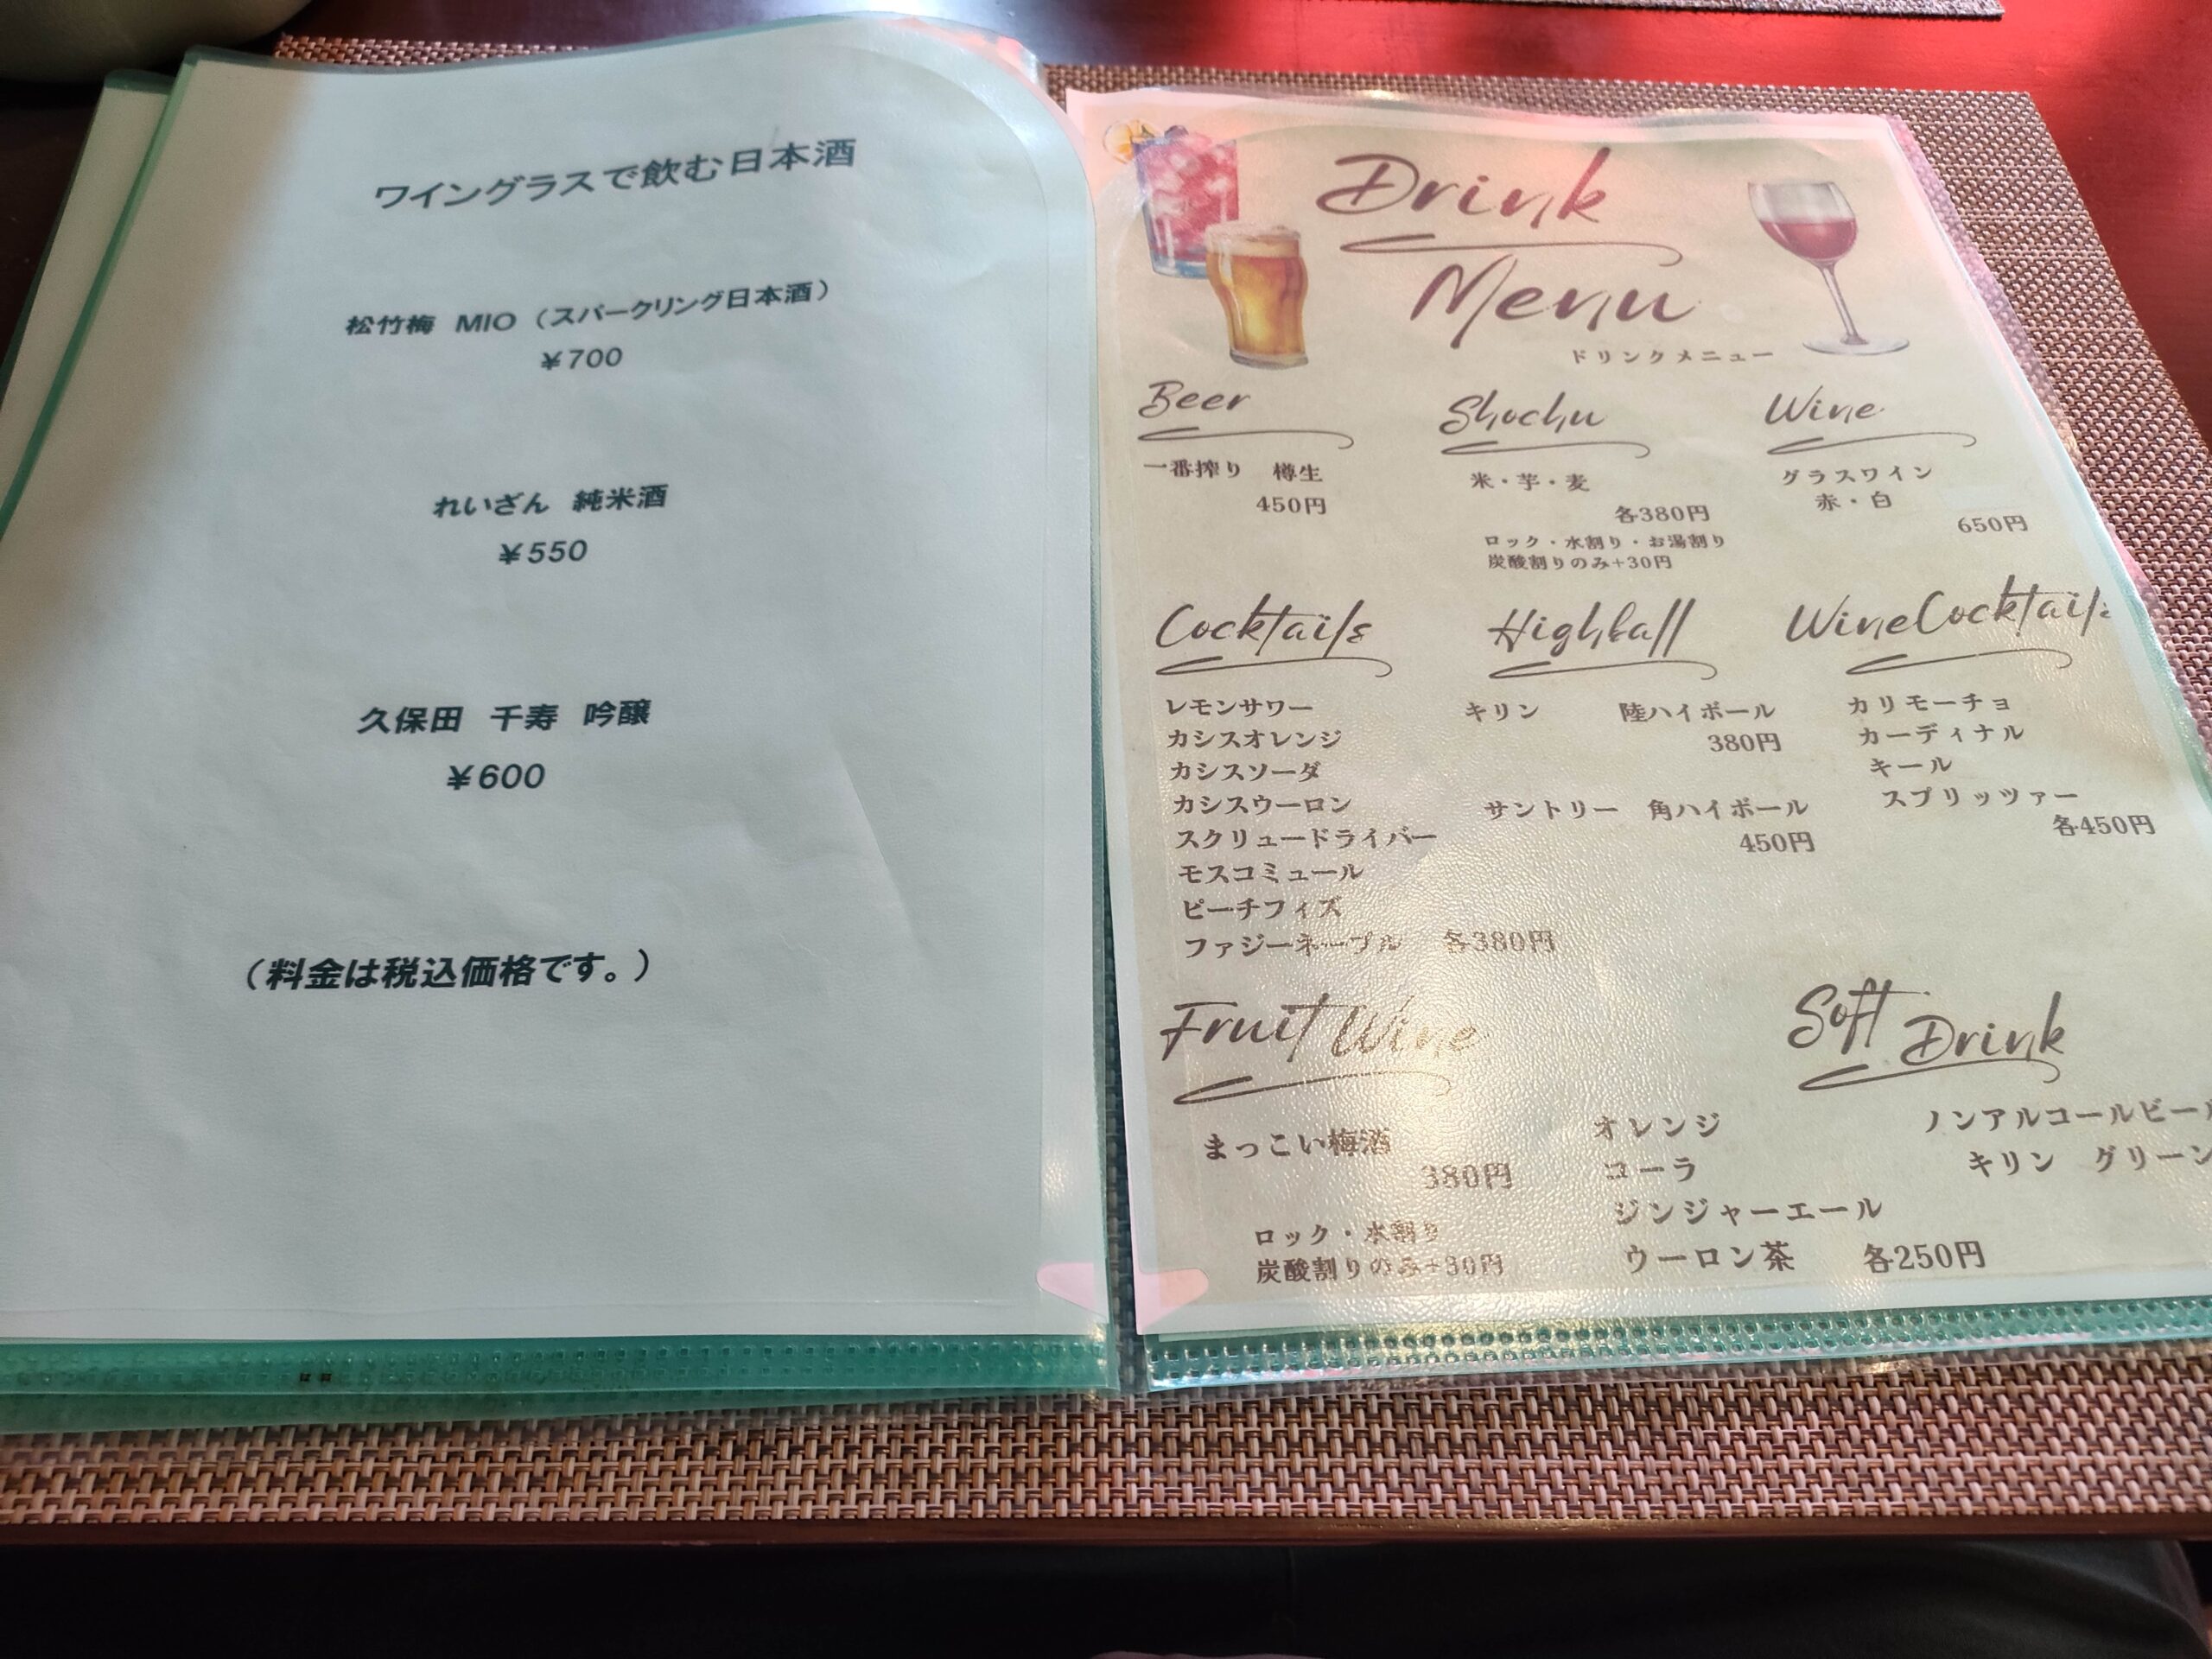 ワイングラスで飲む日本酒
松竹梅 MIO（スパークリング日本酒）
￥700
れいざん 純米酒
￥550
久保田 千寿 吟醸
￥600
（料金は税込価格です。）
Drink
Menu
ドリンクメニュー
Beer
一番搾り 樽生
450円
Shochu
米・芋・麦
各380円
ロック・水割り・お湯割り
炭酸割りのみ+30円
Wine
グラスワイン
赤・白
650円
Cocktails
レモンサワー
カシスオレンジ
カシスソーダ
カシスウーロン
スクリュードライバー
モスコミュール
ピーチフィズ
ファジーネーブル 各380円
Highball
キリン 陸ハイボール
380円
サントリー 角ハイボール
450円
WineCocktails
カリモーチョ
カーディナル
キール
スプリッツァー
各450円
Fruit Wine
まっこい梅酒
380円
ロック・水割り
炭酸割りのみ+30円
Soft Drink
オレンジ
コーラ
ジンジャーエール
ウーロン茶 各250円
ノンアルコールビー
キリン グリーン